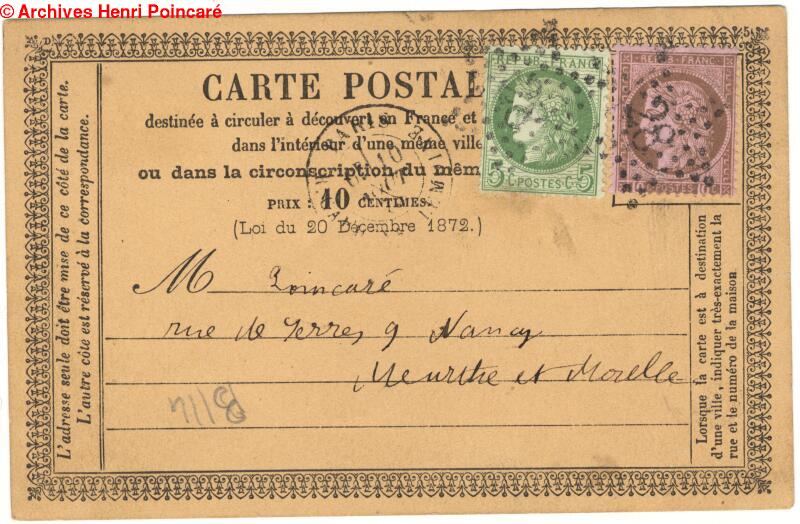 © Archives Henri Poincaré
D
5
CARTE POSTAL
destinée à circuler à découvert en France et
dans l'intérieur d'une même ville
ou dans la circonscription du mêm
PRIX : 10 CENTIMES.
(Loi du 20 Décembre 1872.)
REPUB FRANC
5 C POSTES C 5
REPUB FRANC
POSTES
28
PARIS
L'adresse seule doit être mise de ce côté de la carte.
L'autre côté est réservé à la correspondance.
M Poincaré
rue de Serres 9 Nancy
Meurthe et Moselle
Lorsque la carte est à destination
d'une ville, indiquer très-exactement la
rue et le numéro de la maison